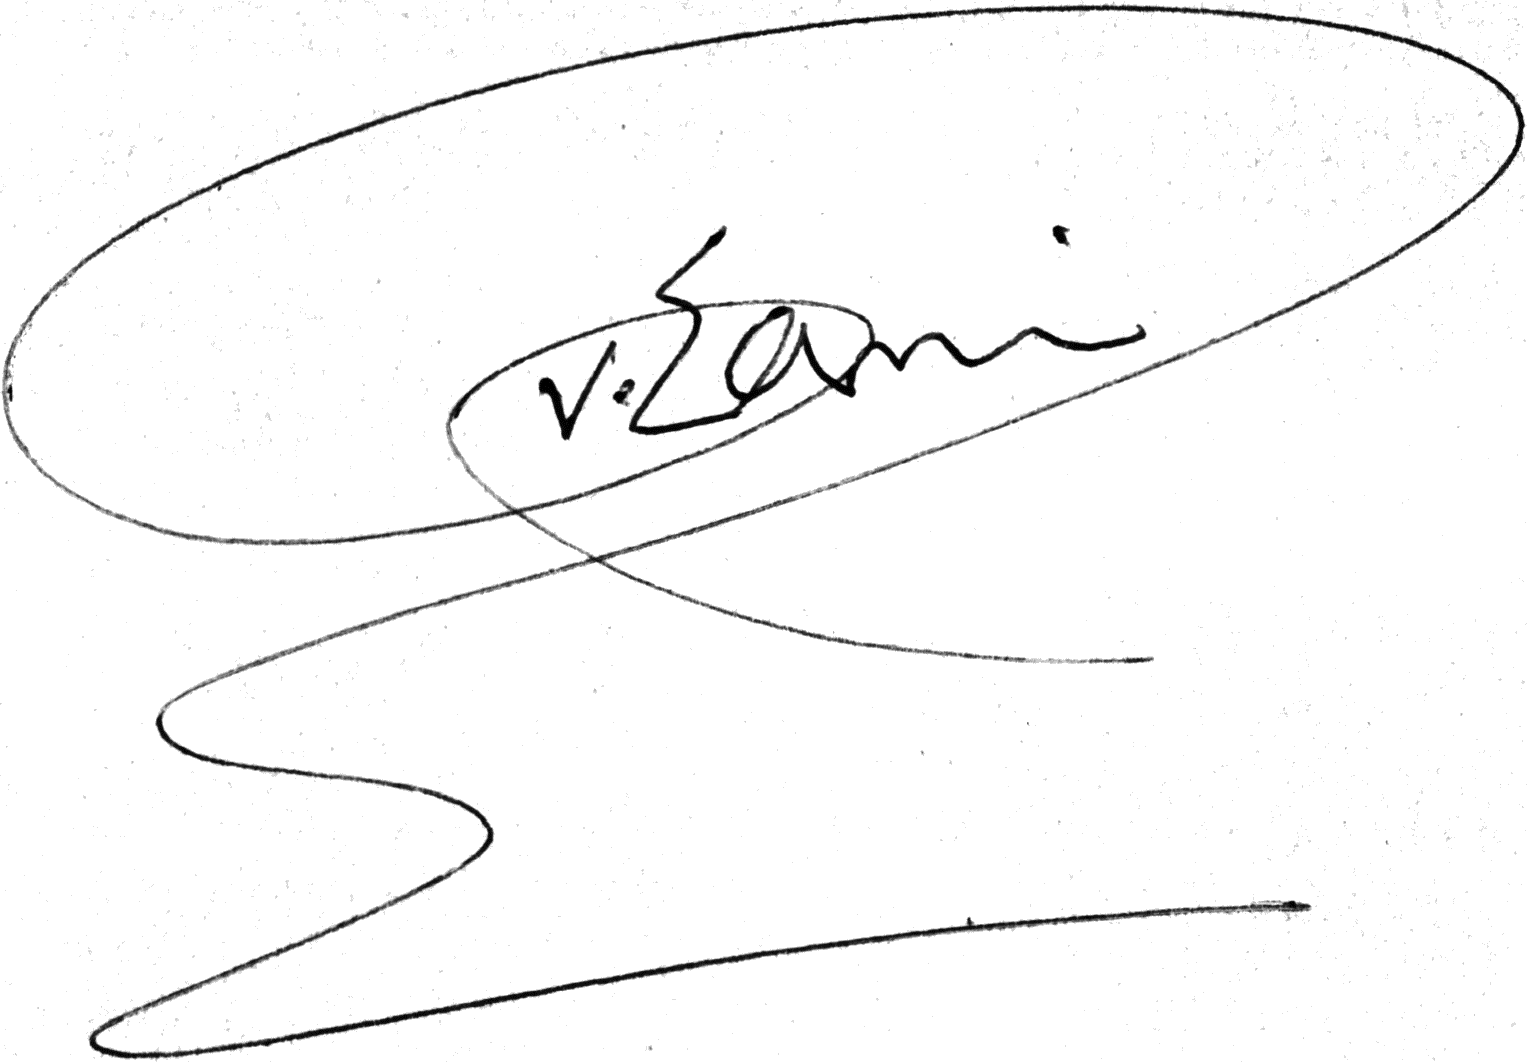 V. Zami